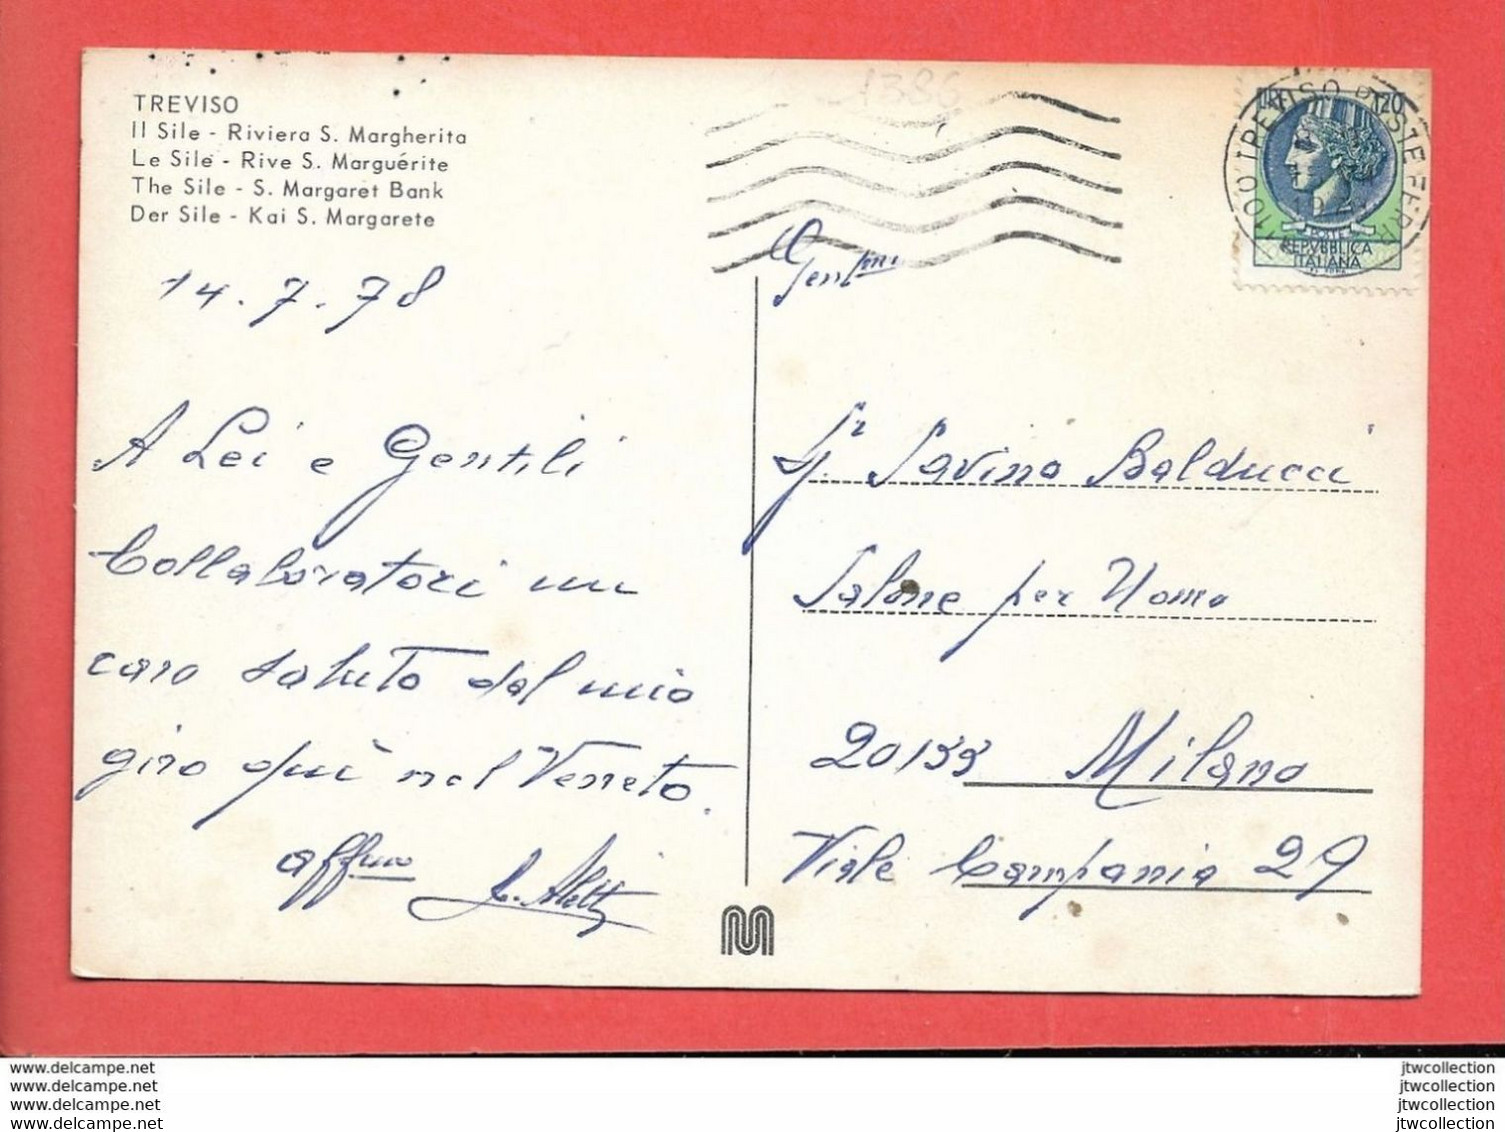 TREVISO
Il Sile - Riviera S. Margherita
Le Sile - Rive S. Marguérite
The Sile - S. Margaret Bank
Der Sile - Kai S. Margarete
14.7.78
A Lei e Gentili
Collaboratori un
caro saluto dal mio
giro quì nel Veneto.
aff.mo
1386
LIRE 120
POSTE
REPVBBLICA
ITALIANA
TREVISO POSTE FERR
Gent.mo
Sr Savino Balducci
Salone per Uomo
20133 Milano
Viale Campania 29
www.delcampe.net
www.delcampe.net
www.delcampe.net
www.delcampe.net
jtwcollection
jtwcollection
jtwcollection
jtwcollection